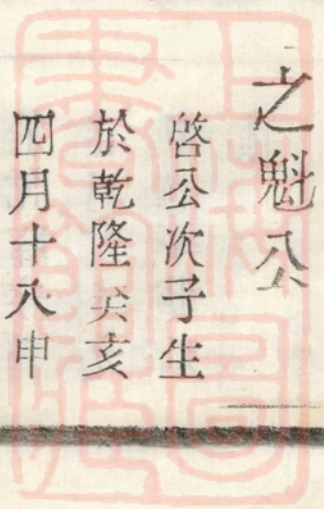 之魁公
啓公次子生
於乾隆癸亥
四月十八申